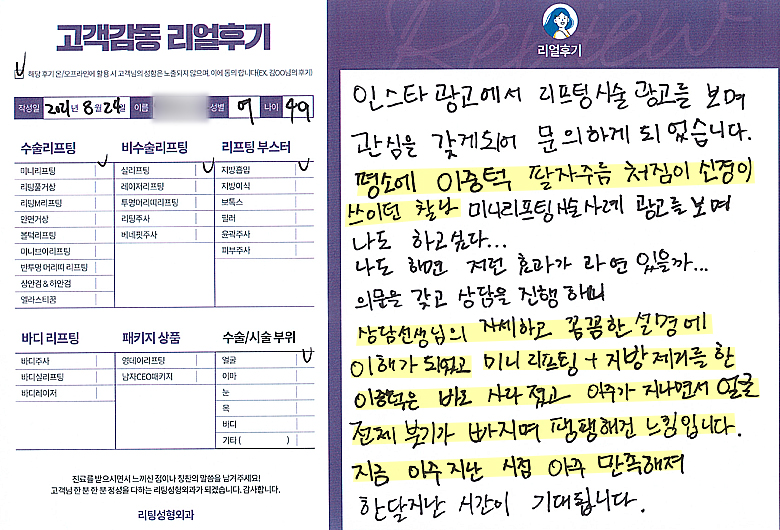 고객감동 리얼후기
해당 후기 온/오프라인에 활용 시 고객님의 성함은 노출되지 않으며, 이에 동의 합니다(EX. 김OO님의 후기)
작성일 2021년 8월 24일 이름 성별 여 나이 49
수술리프팅
미니리프팅
리팅풀거상
리팅M리프팅
안면거상
볼턱리프팅
미니브이리프팅
반투명 머리띠 리프팅
상안검 & 하안검
엘라스티꿈
비수술리프팅
실리프팅
레이저리프팅
투명머리띠리프팅
리팅주사
베네핏주사
리프팅 부스터
지방흡입
지방이식
보톡스
필러
윤곽주사
피부주사
바디 리프팅
바디주사
바디실리프팅
바디레이저
패키지 상품
영데이리프팅
남자CEO패키지
수술/시술 부위
얼굴
이마
눈
목
바디
기타 ( )
진료를 받으시면서 느끼신 점이나 칭찬의 말씀을 남겨주세요!
고객님 한 분 한 분 정성을 다하는 리팅성형외과가 되겠습니다. 감사합니다.
리팅성형외과
Review
리얼후기
인스타 광고에서 리프팅시술 광고를 보며
관심을 갖게되어 문의하게 되었습니다.
평소에 이중턱 팔자주름 처짐이 신경이
쓰이던 찰나 미니리프팅시술사례 광고를 보며
나도 하고싶다...
나도 하면 저런 효과가 과연 있을까...
의문을 갖고 상담을 진행하니
상담선생님의 자세하고 꼼꼼한 설명에
이해가 되었고 미니리프팅 + 지방제거를 한
이중턱은 바로 사라졌고 이주가 지나면서 얼굴
전체 붓기가 빠지며 땡땡해진 느낌입니다.
지금 이주지난 시점 아주 만족해져
한달지난 시간이 기대됩니다.